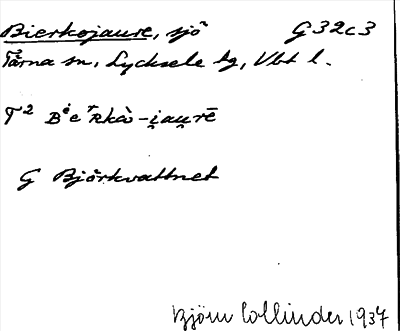 Bierkojaure, sjö G32c3
Tärna sn, Lycksele lg, Vbt l.
G Björkvattnet
Björn Collinder 1937